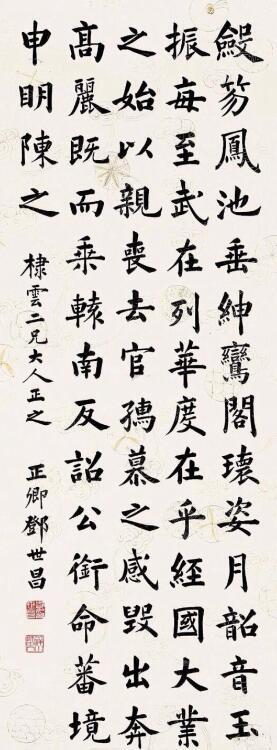 斂笏鳳池垂紳鸞閣瓌姿月韶音玉
振每至武在列華度在乎經國大業
之始以親喪去官孺慕之感毀出奔
髙麗既而乘轅南反詔公銜命蕃境
申明陳之
棣雲二兄大人正之 正卿鄧世昌